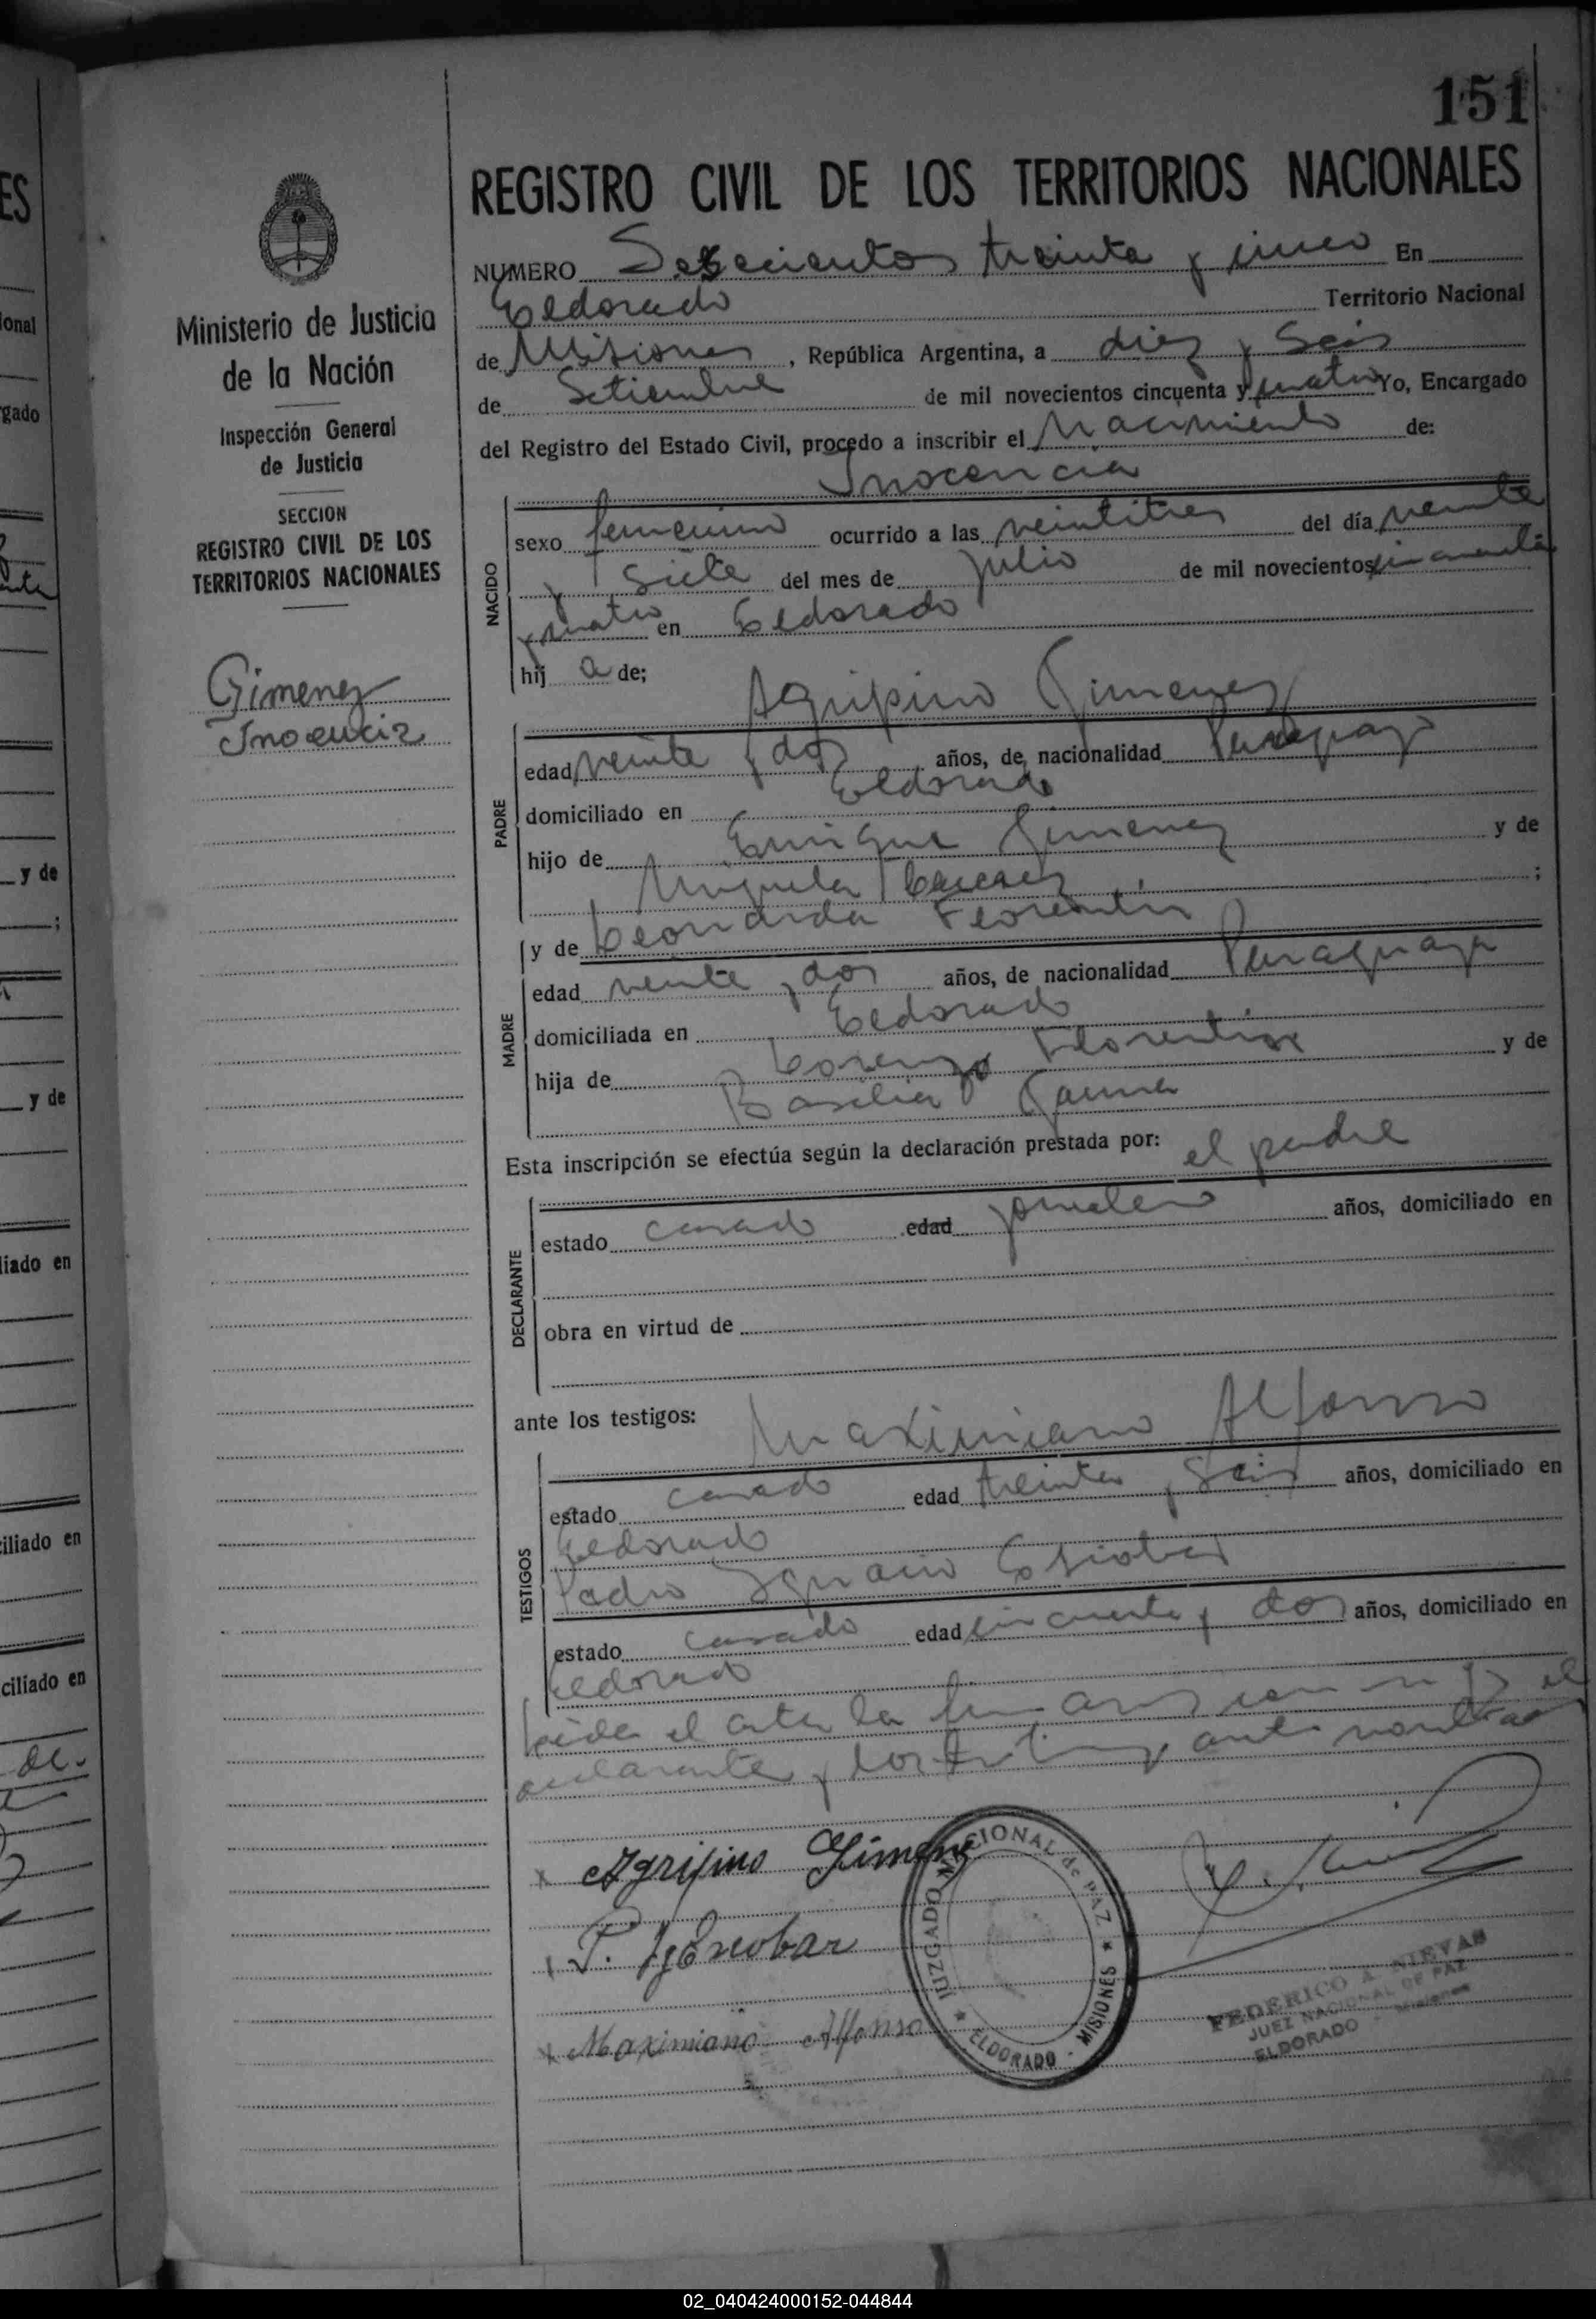 151
REGISTRO CIVIL DE LOS TERRITORIOS NACIONALES
NUMERO Seiscientos treinta y cinco En
Eldorado Territorio Nacional
de Misiones, República Argentina, a diez y Seis
de Setiembre de mil novecientos cincuenta y cuatro Yo, Encargado
del Registro del Estado Civil, procedo a inscribir el Nacimiento de:
Inocencia
NACIDO
sexo femenino ocurrido a las veintitres del día veinte
y Siete del mes de Julio de mil novecientos cincuenta
y cuatro en Eldorado
hij a de;
Agripino Gimenez
PADRE
edad veinte y dos años, de nacionalidad Paraguayo
domiciliado en Eldorado
hijo de Enrique Gimenez y de
Miguela ;
y de Leonarda Florentin
MADRE
edad veinte y dos años, de nacionalidad Paraguaya
domiciliada en Eldorado
hija de Lorenzo Florentin y de
Basilia
Esta inscripción se efectúa según la declaración prestada por: el padre
DECLARANTE
estado casado edad jornalero años, domiciliado en
obra en virtud de
ante los testigos: Maximiano Alfonso
TESTIGOS
estado casado edad treinta y Seis años, domiciliado en
Eldorado
Pedro Ignacio Escobar
estado casado edad cincuenta y dos años, domiciliado en
Eldorado
Leida el acta la el
declarante y los
x Agripino Gimene
P. Ig Escobar
x Maximiano Alfonso
JUZGADO NACIONAL de PAZ
ELDORADO - MISIONES
FEDERICO A. NIEVAS
JUEZ NACIONAL DE PAZ
ELDORADO - Misiones
Ministerio de Justicia
de la Nación
Inspección General
de Justicia
SECCION
REGISTRO CIVIL DE LOS
TERRITORIOS NACIONALES
Gimenez
Inocencia
ES
onal
gado
y de
;
y de
liado en
iliado en
ciliado en
02_040424000152-044844